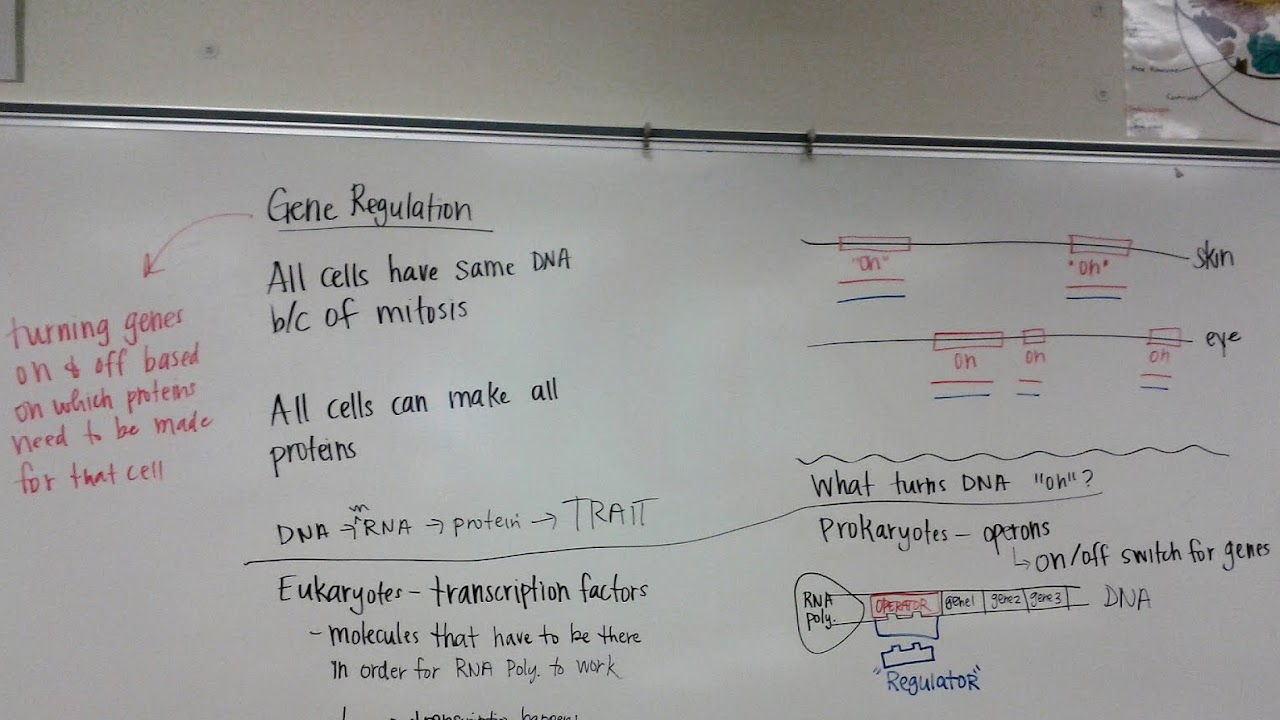 Gene Regulation
turning genes
on & off based
on which proteins
need to be made
for that cell
All cells have same DNA
b/c of mitosis
All cells can make all
proteins
DNA → mRNA → protein → TRAIT
Eukaryotes - transcription factors
- molecules that have to be there
in order for RNA Poly. to work
"on" "on" skin
on on on eye
What turns DNA "on"?
Prokaryotes - operons
↳ on/off switch for genes
RNA
poly.
OPERATOR gene1 gene2 gene3 DNA
"Regulator"